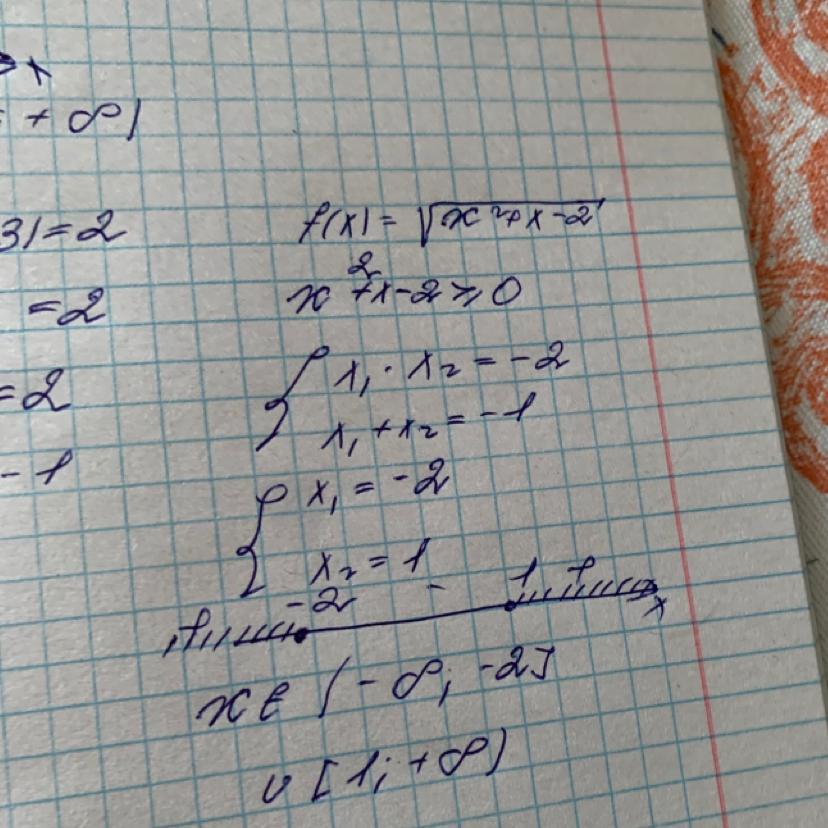 x
+ ∞)
3) = 2
= 2
= 2
- 1
f(x) = √(x²+x-2)
x²+x-2 ≥ 0
{ x₁ · x₂ = -2
x₁ + x₂ = -1
{ x₁ = -2
x₂ = 1
+ -2 - 1 + x
x ∈ (-∞; -2]
∪ [1; +∞)